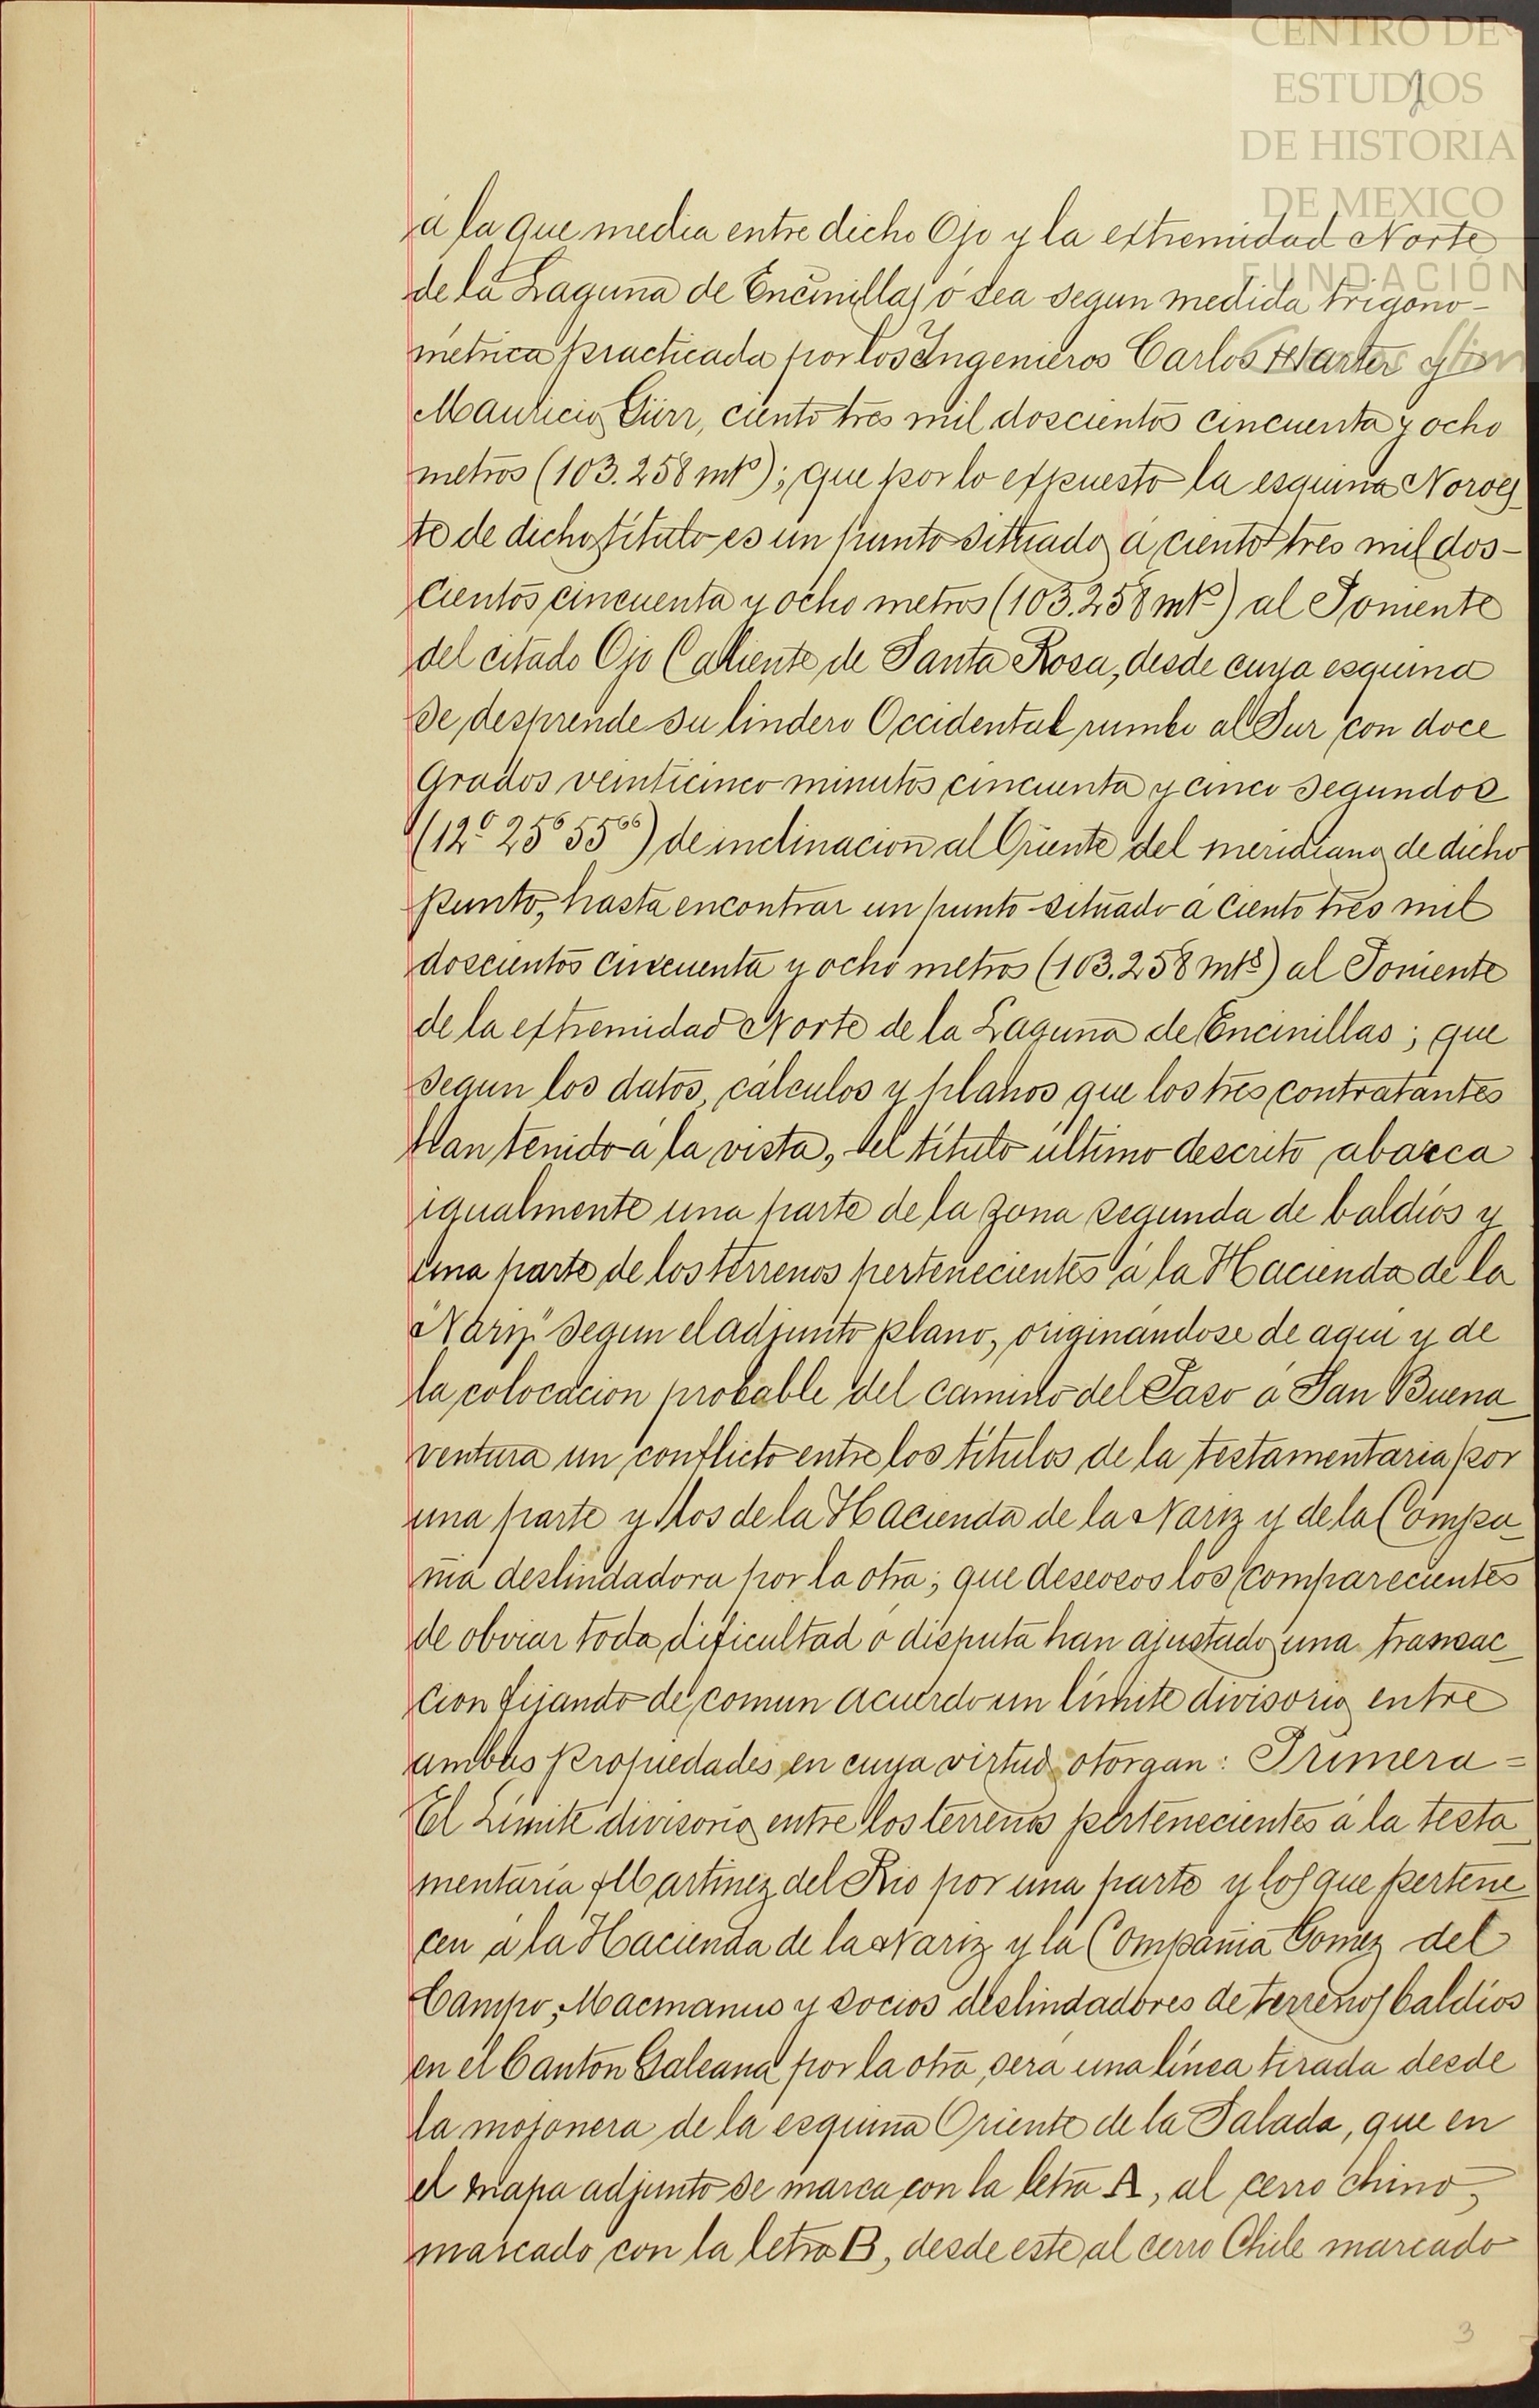 CENTRO DE
ESTUDIOS
DE HISTORIA
DE MEXICO
FUNDACIÓN
á la que media entre dicho Ojo y la extremidad Norte
de la Laguna de Encinillas ó sea segun medida trigono-
métrica practicada por los Ingenieros Carlos Harter y
Mauricio Gürr, ciento tres mil doscientos cincuenta y ocho
metros (103.258 mts); que por lo expuesto la esquina Noroes-
te de dicho título es un punto situado á ciento tres mil dos-
cientos cincuenta y ocho metros (103.258 mts) al Poniente
del citado Ojo Caliente de Santa Rosa, desde cuya esquina
se desprende su lindero Occidental rumbo al Sur con doce
grados veinticinco minutos cincuenta y cinco segundos
(12º 25' 55'') de inclinacion al Oriente del meridiano de dicho
punto, hasta encontrar un punto situado á ciento tres mil
doscientos cincuenta y ocho metros (103.258 mts) al Poniente
de la extremidad Norte de la Laguna de Encinillas; que
segun los datos, cálculos y planos que los tres contratantes
han tenido á la vista, el título último descrito abarca
igualmente una parte de la zona segunda de baldíos y
una parte de los terrenos pertenecientes á la Hacienda de la
"Nariz" segun el adjunto plano, originándose de aquí y de
la colocacion probable del camino del Paso á San Buena
ventura un conflicto entre los títulos de la testamentaria por
una parte y los de la Hacienda de la Nariz y de la Compa-
ñia deslindadora por la otra; que deseosos los comparecientes
de obviar toda dificultad ó disputa han ajustado una transac-
cion fijando de comun acuerdo un límite divisorio entre
ambas propiedades en cuya virtud otorgan: Primera=
El Límite divisorio entre los terrenos pertenecientes á la testa-
mentaría Martinez del Rio por una parte y los que pertene-
cen á la Hacienda de la Nariz y la Compañia Gomez del
Campo, Macmanus y socios deslindadores de terrenos baldíos
en el Canton Galeana por la otra, será una línea tirada desde
la mojonera de la esquina Oriente de la Salada, que en
el mapa adjunto se marca con la letra A, al cerro chino,
marcado con la letra B, desde este al cerro Chile marcado
3